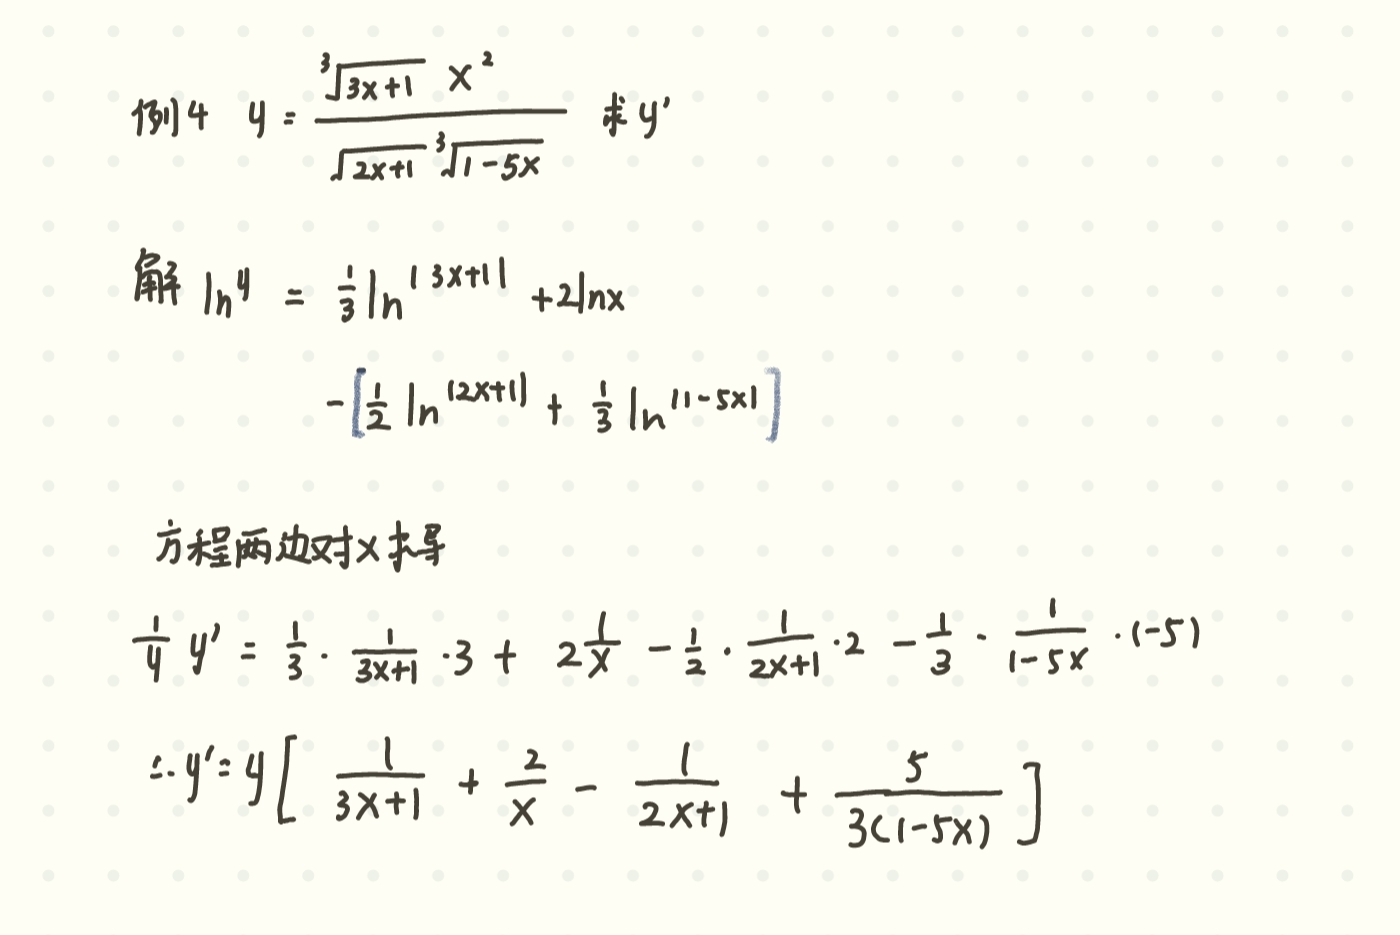 例4 y = \frac{\sqrt[3]{3x+1} x^2}{\sqrt{2x+1} \sqrt[3]{1-5x}} 求y'
解 ln^y = \frac{1}{3} ln^{|3x+1|} + 2lnx
-[\frac{1}{2} ln^{|2x+1|} + \frac{1}{3} ln^{|1-5x|}]
方程两边对x求导
\frac{1}{y} y' = \frac{1}{3} · \frac{1}{3x+1} · 3 + 2\frac{1}{x} - \frac{1}{2} · \frac{1}{2x+1} · 2 - \frac{1}{3} · \frac{1}{1-5x} · (-5)
∴ y' = y[\frac{1}{3x+1} + \frac{2}{x} - \frac{1}{2x+1} + \frac{5}{3(1-5x)}]